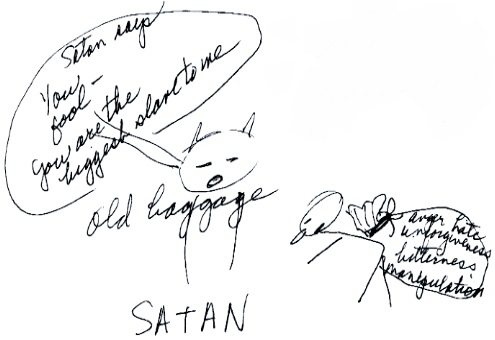 Satan says
You
fool -
you are the
biggest slave to me
Old baggage
SATAN
anger hate
unforgiveness
bitterness
manipulation